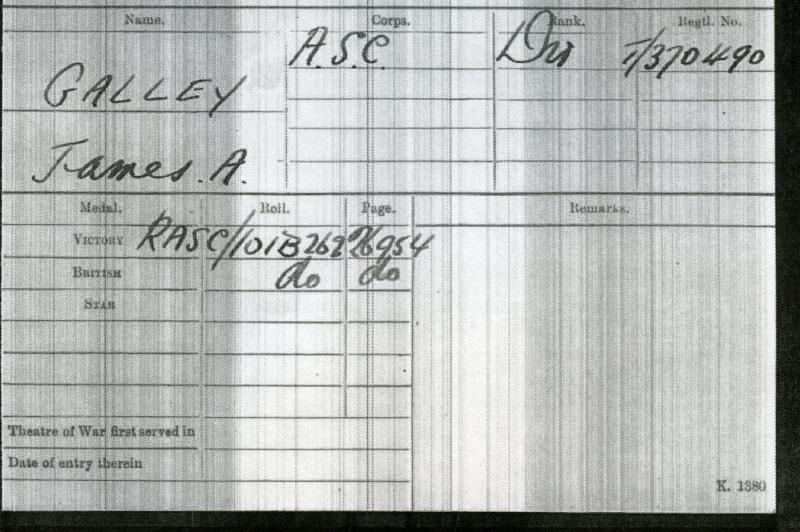 Name. Corps. Rank. Regtl. No.
A.S.C. Dvr T/370490
GALLEY
James. A.
Medal. Roll. Page. Remarks.
VICTORY RASC/101B262 26954
BRITISH do do
STAR
Theatre of War first served in
Date of entry therein
K. 1380